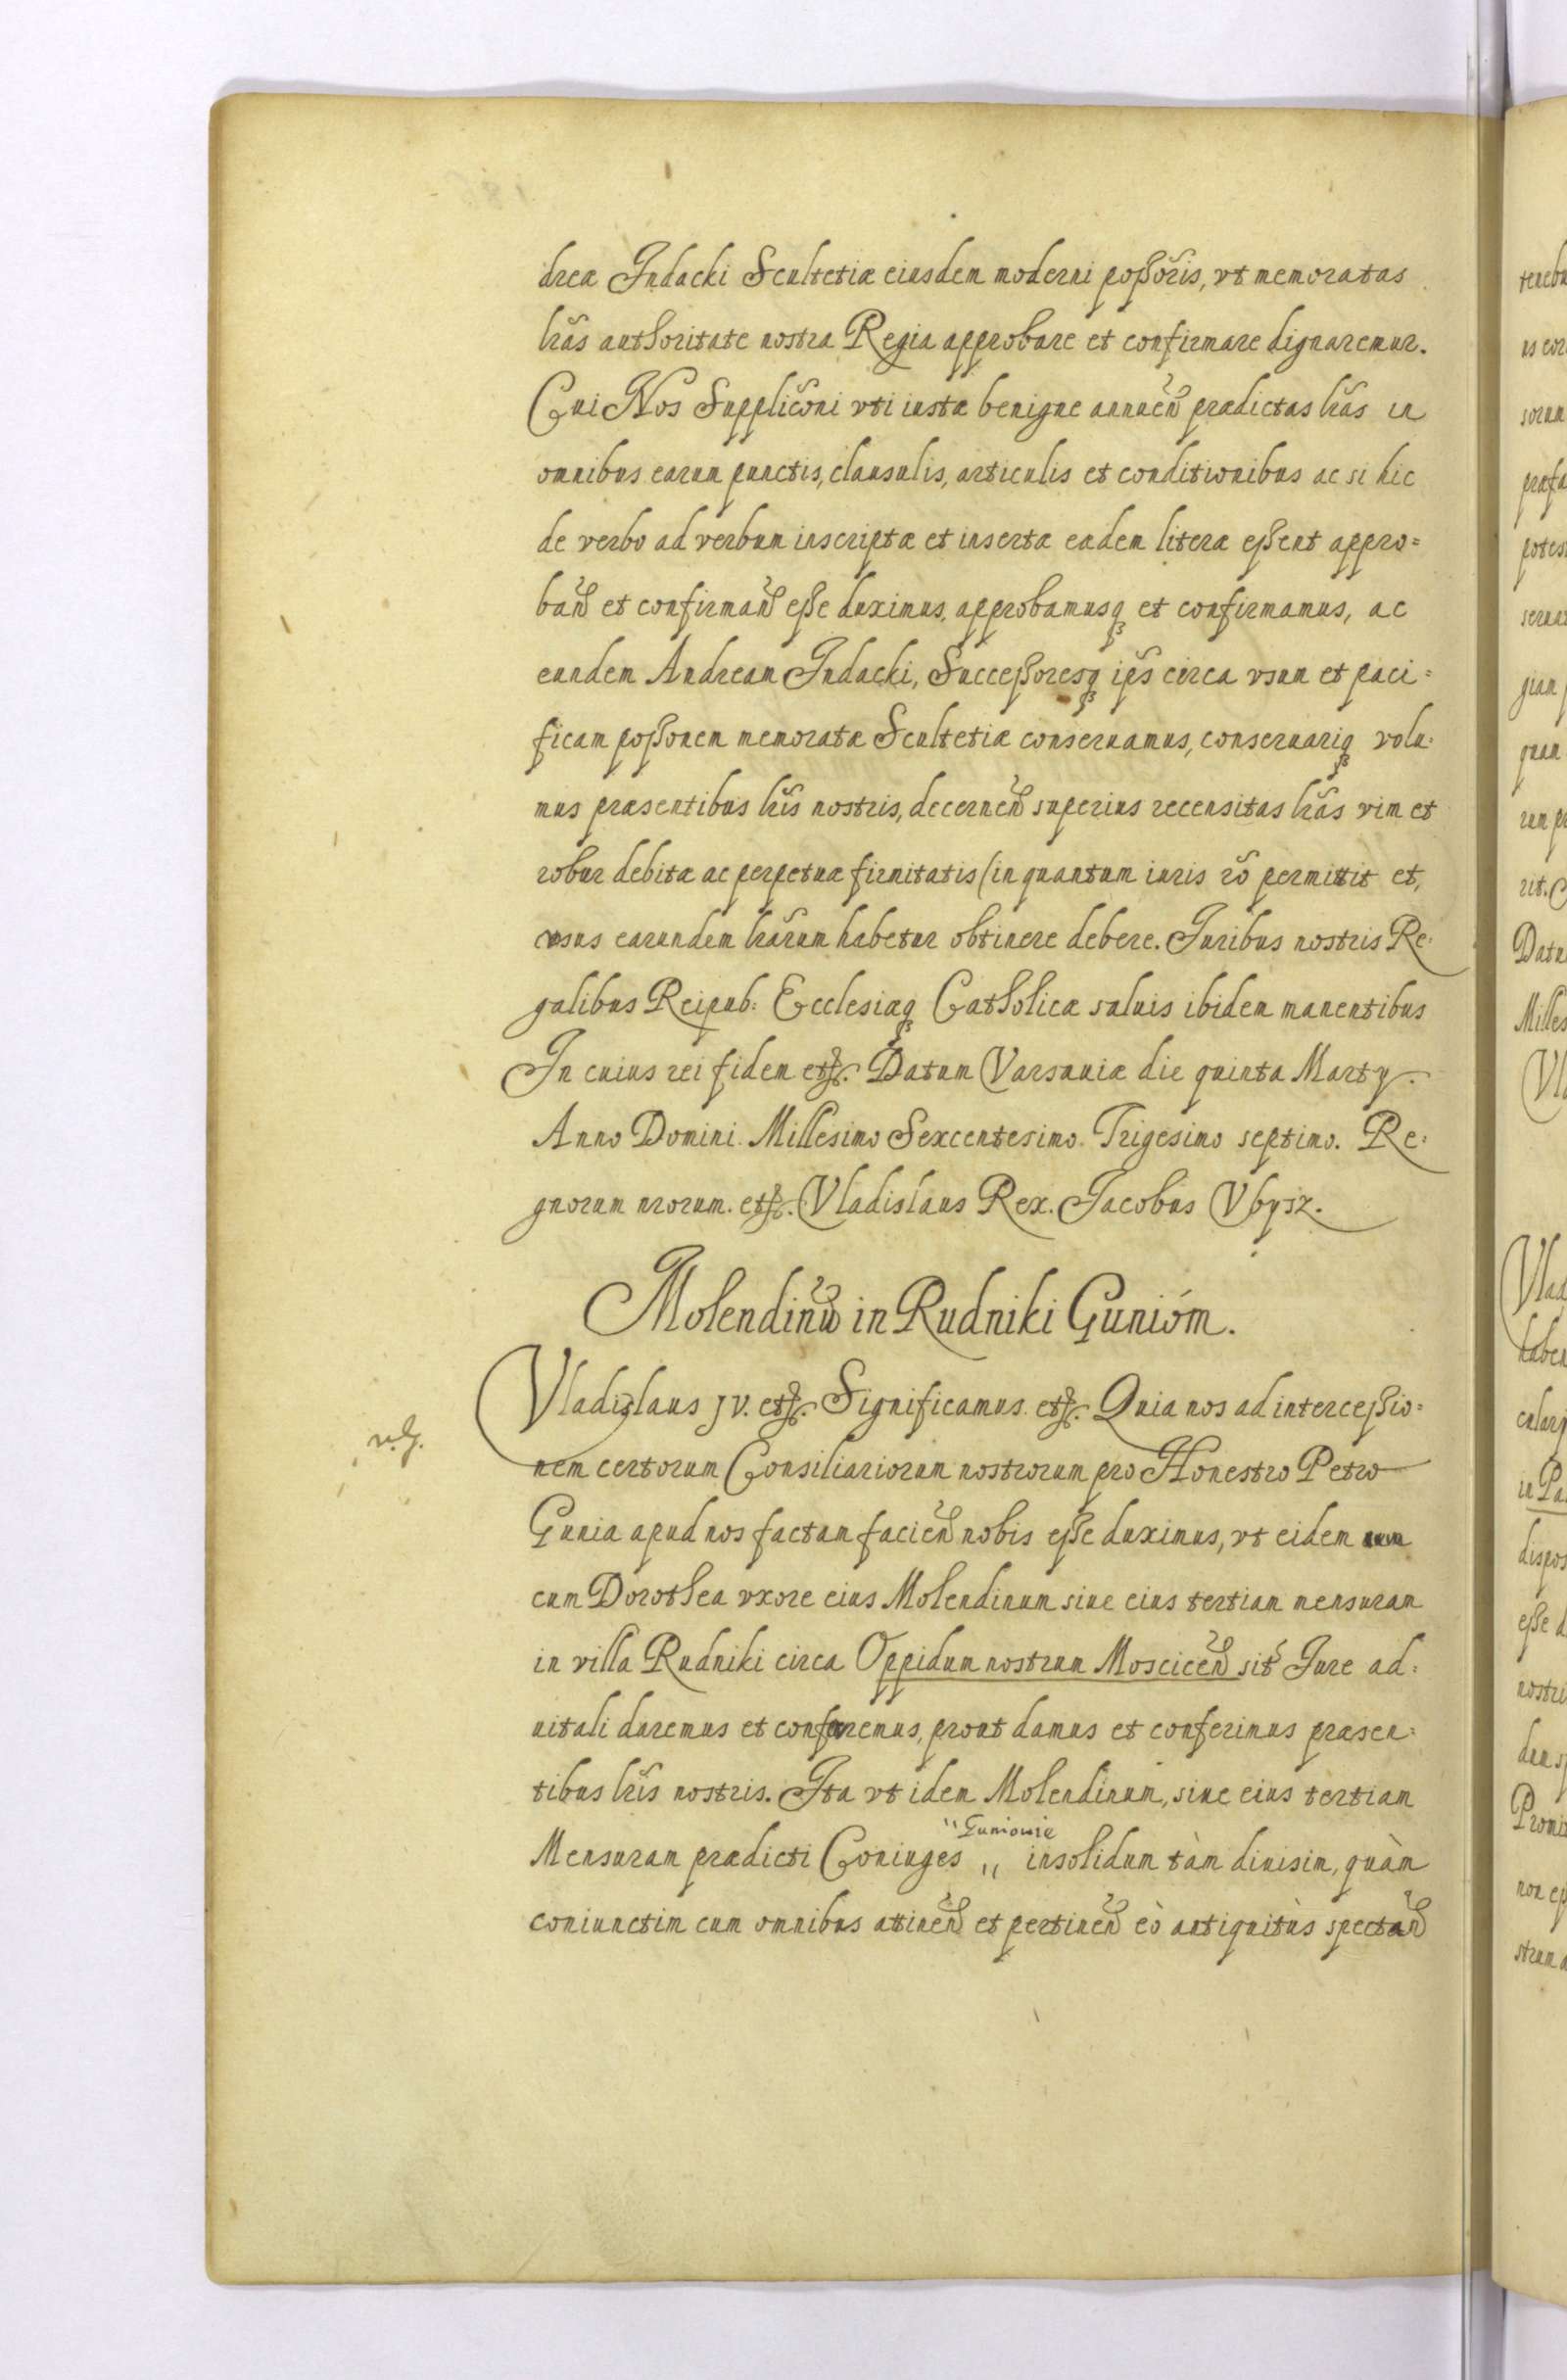 dreæ Judacki Scultetiæ eiusdem moderni poßoris, vt memoratas
lras authoritate nostra Regia approbare et confirmare dignaremur.
Cui Nos Supplicõni vti iustæ benigne annueñ prædictas lras in
omnibus earum punctis, clausulis, articulis et conditionibus ac si hic
de verbo ad verbum inscriptæ et insertæ eædem literæ eßent appro=
bañ et confirmañ eße duximus, approbamusq et confirmamus, ac
eundem Andream Judacki, Succeßoresq ips circa vsum et paci=
ficam poßonem memoratæ Scultetiæ conseruamus, conseruariq volu=
mus præsentibus lris nostris, decerneñ superius recensitas lras vim et
robur debitæ ac perpetuæ firmitatis (in quantum iuris rõ permittit et,
vsus earundem lrarum habetur obtinere debere. Juribus nostris Re=
galibus Reipub: Ecclesiæq Catholicæ saluis ibidem manentibus
In cuius rei fidem etc. Datum Varsauiæ die quinta Marty.
Anno Domini Millesimo Sexcentesimo Trigesimo septimo. Re=
gnorum nrorum. etc. Vladislaus Rex. Jacobus Vbysz.
Molendinũ in Rudniki Gunióm.
Vladislaus JV. etc. Significamus etc. Quia nos ad interceßio=
nem certorum Consiliariorum nostrorum pro Honestro Petro
Gunia apud nos factam facieñ nobis eße duximus, vt eidem
cum Dorothea vxore eius Molendinum siue eius tertiam mensuram
in villa Rudniki circa Oppidum nostrum Mosciceñ sit Jure ad=
uitali daremus et conferemus, prout damus et conferimus præsen=
tibus lris nostris. Ita vt idem Molendinum, siue eius tertiam
" Guniowie
Mensuram prædicti Coniuges " insolidum tàm diuisim, quàm
coniunctim cum omnibus attineñ et pertineñ eò antiquitùs spectañ